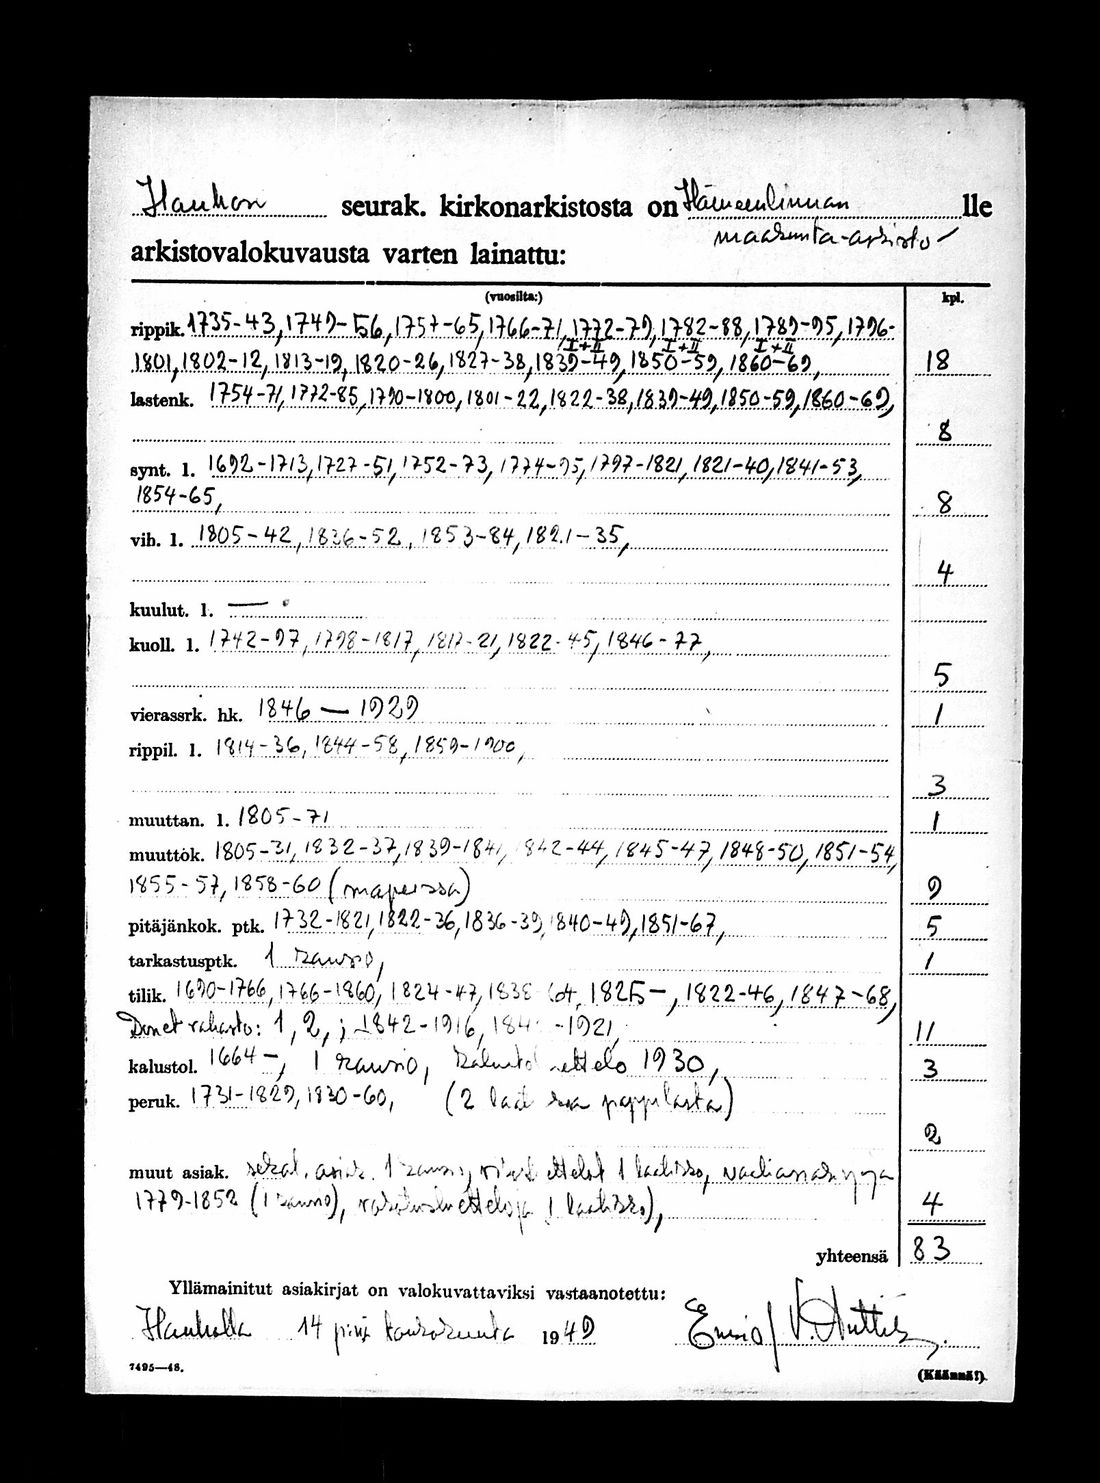 Hauhon seurak. kirkonarkistosta on Hämeenlinnan lle
maakunta-arkisto-
arkistovalokuvausta varten lainattu:
(vuosilta:) kpl.
rippik. 1735-43, 1749-56, 1757-65, 1766-71, 1772-79, 1782-88, 1789-95, 1796-
I+II I+II I+II
1801, 1802-12, 1813-19, 1820-26, 1827-38, 1839-49, 1850-59, 1860-69, 18
lastenk. 1754-71, 1772-85, 1790-1800, 1801-22, 1822-38, 1839-49, 1850-59, 1860-69,
8
synt. l. 1692-1713, 1727-51, 1752-73, 1774-95, 1797-1821, 1821-40, 1841-53,
1854-65, 8
vih. l. 1805-42, 1836-52, 1853-84, 1821-35,
4
kuulut. l. —
kuoll. l. 1742-97, 1798-1817, 1817-21, 1822-45, 1846-77,
5
vierassrk. hk. 1846 — 1929 1
rippil. l. 1814-36, 1844-58, 1859-1900,
3
muuttan. l. 1805-71 1
muuttok. 1805-31, 1832-37, 1839-1841, 1842-44, 1845-47, 1848-50, 1851-54,
1855-57, 1858-60 (mapeissa) 9
pitäjänkok. ptk. 1732-1821, 1822-36, 1836-39, 1840-49, 1851-67, 5
tarkastusptk. 1 kansio, 1
tilik. 1690-1766, 1766-1860, 1824-47, 1838-64, 1825-, 1822-46, 1847-68,
rahasto: 1, 2, j 1842-1916, -1921, 11
kalustol. 1664-, 1 kansio, 1930, 3
peruk. 1731-1829, 1830-60, (2 pappilasta)
2
muut asiak. sekal. asiak. 1 kansio, 1 laatikko,
1779-1852 (1 kansio), 1 laatikko), 4
yhteensä 83
Yllämainitut asiakirjat on valokuvattaviksi vastaanotettu:
Hauholla 14 p:nä kuuta 1949
7495—48. (Käännä!)